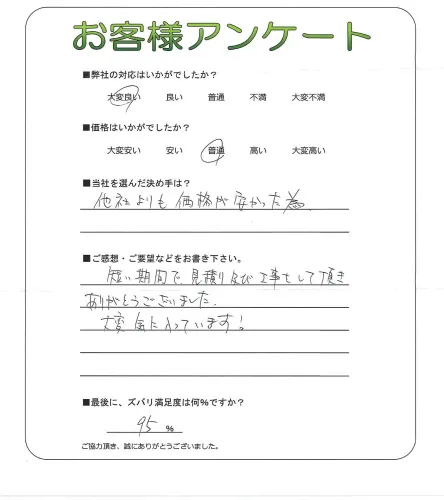 お客様アンケート
■弊社の対応はいかがでしたか？
大変良い 良い 普通 不満 大変不満
■価格はいかがでしたか？
大変安い 安い 普通 高い 大変高い
■当社を選んだ決め手は？
他社よりも価格が安かった為
■ご感想・ご要望などをお書き下さい。
短い期間で見積り及び工事をして頂き
ありがとうございました.
大変気に入っています!
■最後に、ズバリ満足度は何%ですか？
95 %
ご協力頂き、誠にありがとうございました。